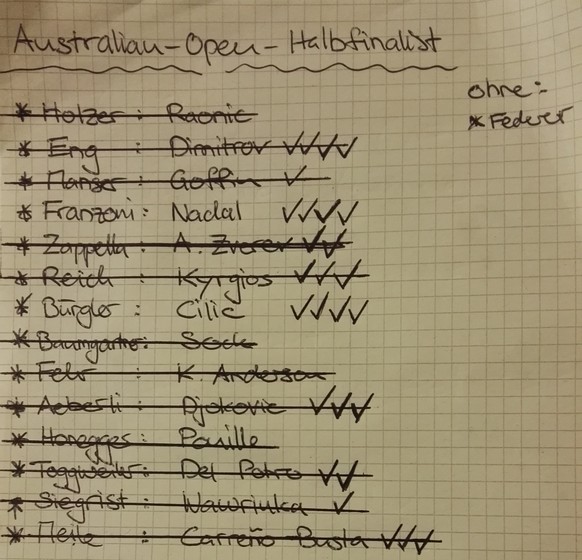 Australian-Open-Halbfinalist
ohne:
* Federer
* Holzer: Raonic
* Eng : Dimitrov ✓✓✓✓
* Manser: Goffin ✓
* Franzoni: Nadal ✓✓✓✓
* Zappella: A. Zverev ✓✓
* Reich : Kyrgios ✓✓✓
* Bürgler : Cilic ✓✓✓✓
* Baumgartner: Sock
* Fehr : K. Anderson
* Aeberli : Djokovic ✓✓✓
* Honegger: Pouille
* Toggweiler: Del Potro ✓✓
* Siegrist : Wawrinka ✓
* Meile : Carreño Busta ✓✓✓